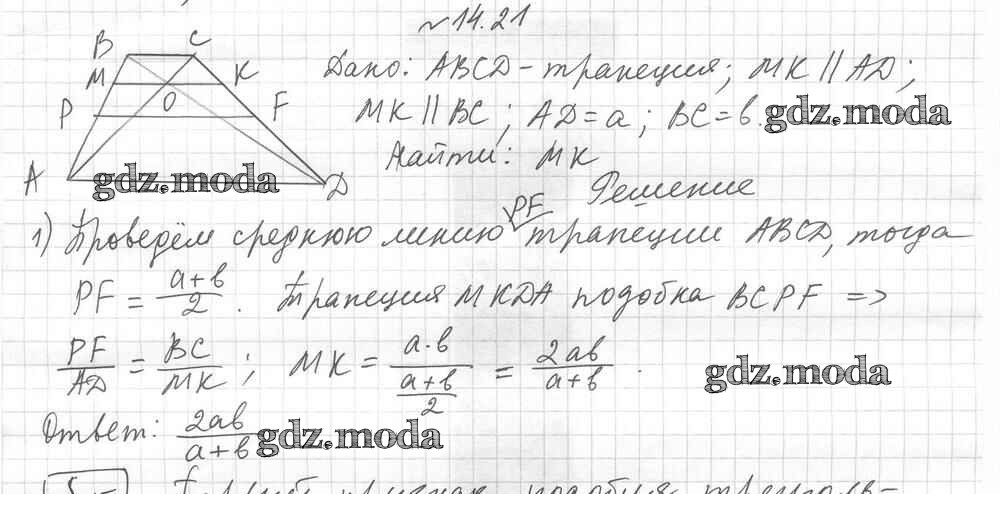 №14.21
B C
M K
O
P F
A D
Дано: ABCD - трапеция; MK || AD;
MK || BC; AD = a; BC = b. gdz.moda
Найти: MK
gdz.moda
Решение
PF
1) Проведём среднюю линию трапеции ABCD, тогда
PF = a+b/2. Трапеция MKDA подобна BCPF =>
PF/AD = BC/MK; MK = a·b/(a+b/2) = 2ab/a+b.
gdz.moda
Ответ: 2ab/a+b gdz.moda